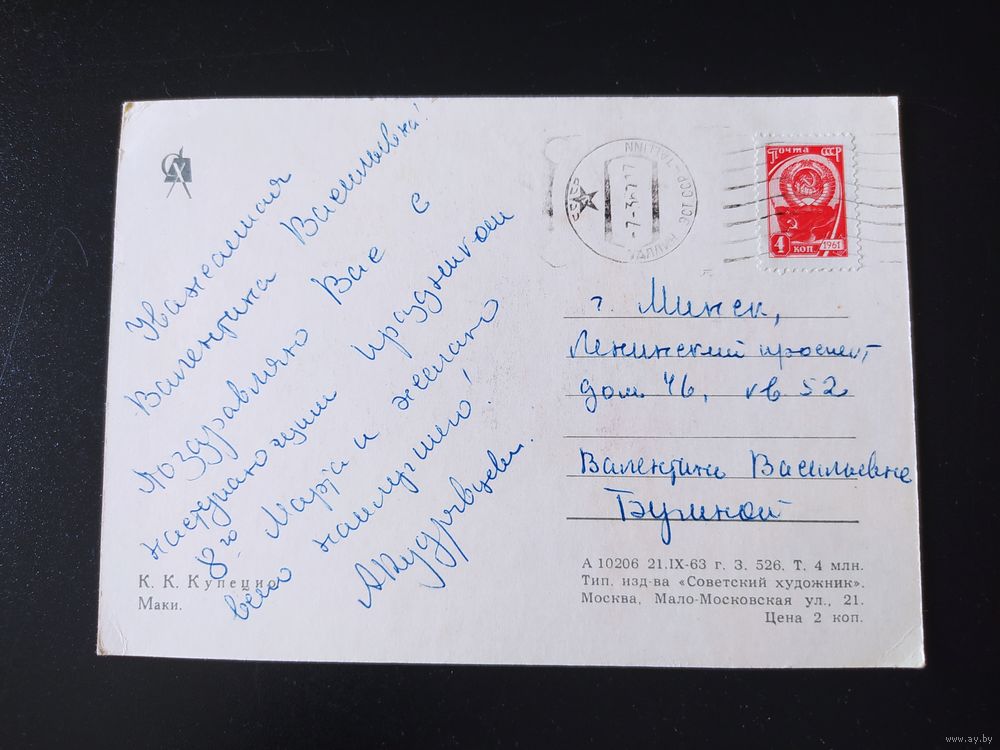 Уважаемая
Валентина Васильевна!
Поздравляю Вас с
наступающим праздником
8го Марта и желаю
всего наилучшего!
К. К. Купецио
Маки.
СССР
ПОЧТА СССР
4 КОП
1961
г. Минск,
Ленинский проспект
дом 46, кв 52
Валентине Васильевне
А 10206 21.IX-63 г. З. 526. Т. 4 млн.
Тип. изд-ва «Советский художник».
Москва, Мало-Московская ул., 21.
Цена 2 коп.
www.ay.by